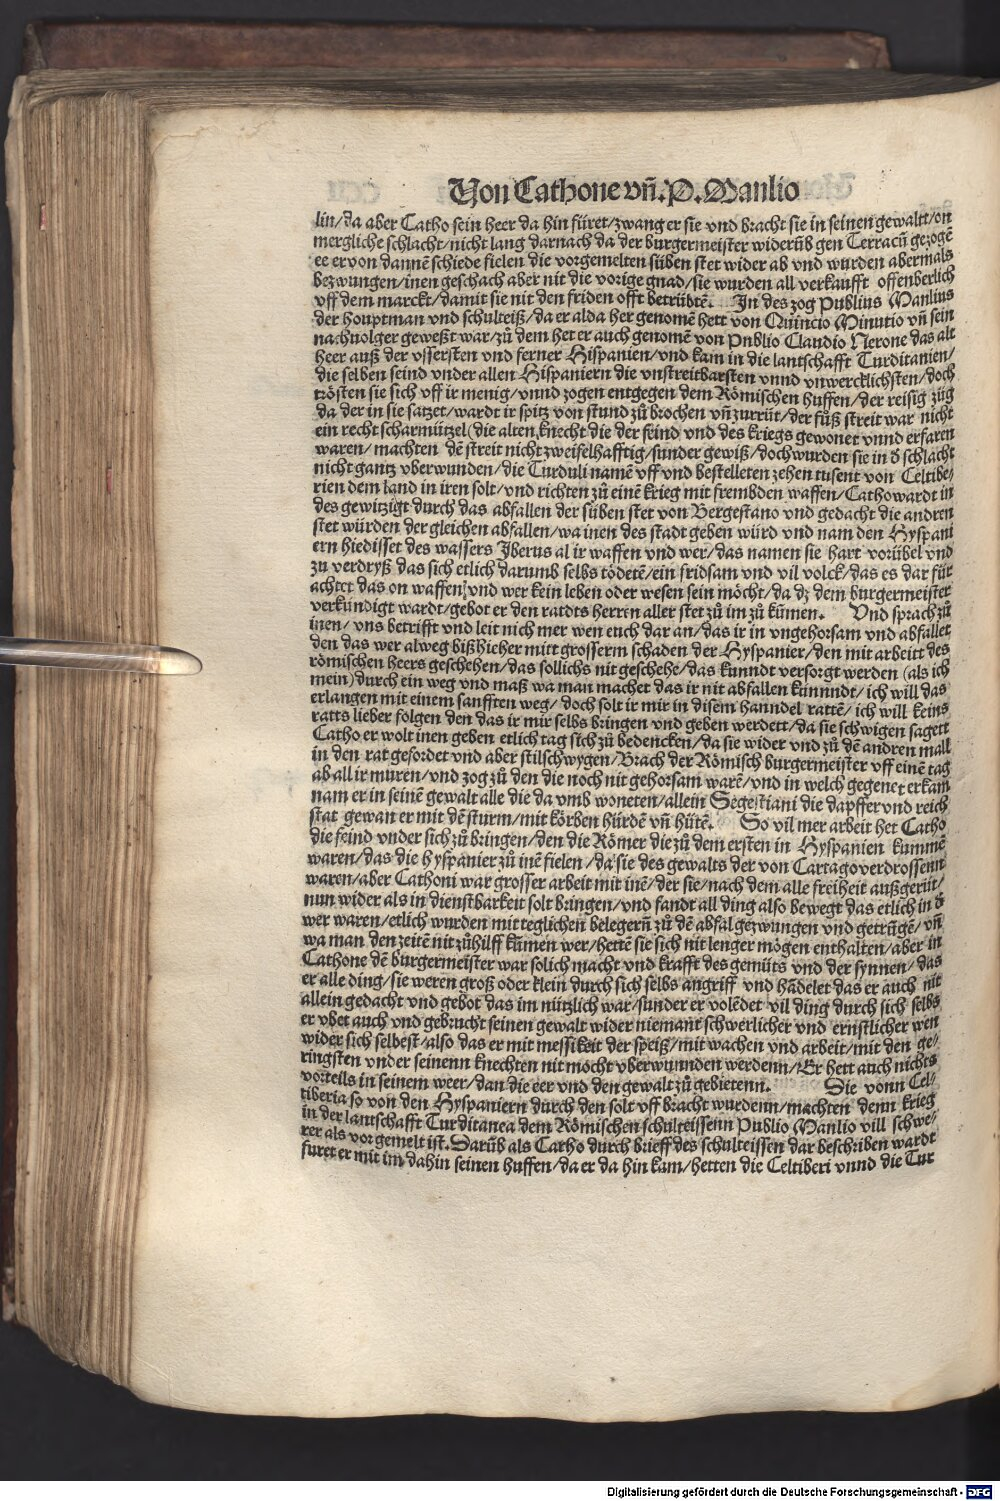 Von Cathone vñ. P. Manlio
lin/da aber Catho sein heer da hin füret/zwang er sie vnd bracht sie in seinen gewaltt/on
mergliche schlacht/nicht lang darnach da der burgermeister widerũb gen Terracũ gezogẽ
ee er von dannẽ schiede fielen die vorgemelten süben stet wider ab vnd wurden abermals
bezwungen/inen geschach aber nit die vorige gnad/sie wurden all verkaufft offenberlich
vff dem marckt/damit sie nit den friden offt betrübtẽ. In des zog Publius Manlius
der houptman vnd schulteiß/da er alda her genomẽ hett von Quincio Minutio vñ sein
nachuolger geweßt war/zů dem het er auch genomẽ von Pnblio Claudio Nerone das alt
heer auß der vssersten vnd ferner Hispanien/vnd kam in die lantschafft Turditanien/
die selben seind vnder allen Hispaniern die vnstreitbarsten vnnd vnwercklichsten/doch
trösten sie sich vff ir menig/vnnd zogen entgegen dem Römischen huffen/der reisig züg
da der in sie satzet/wardt ir spitz von stund zů brochen vñ zurrüt/der fůß streit war nicht
ein recht scharmützel (die alten knecht die der feind vnd des kriegs gewonet vnnd erfaren
waren/machten dẽ streit nicht zweifelhafftig/sunder gewiß/doch wurden sie in d̕ schlacht
nicht gantz vberwunden/die Turduli namẽ vff vnd bestelleten zehen tusent von Celtibe/
rien dem land in iren solt/vnd richten zů einẽ krieg mit frembden waffen/Catho wardt in
des gewitzigt durch das abfallen der süben stet von Bergestano vnd gedacht die andren
stet würden der gleichen abfallen/wa inen des stadt geben würd vnd nam den Hyspani
ern hiedisset des wassers Iberus al ir waffen vnd wer/das namen sie hart vorübel vnd
zu verdryß das sich etlich darumb selbs tödetẽ/ein fridsam vnd vil volck/das es dar für
achtet das on waffen vnd wer kein leben oder wesen sein möcht/da dz dem burgermeister
verkündigt wardt/gebot er den ratdts herren aller stet zů im zů kũmen. Vnd sprach zů
inen/vns betrifft vnd leit nich mer wen euch dar an/das ir in vngehorsam vnd abfallet
den das wer alweg biß hieher mitt grosserm schaden der Hyspanier/den mit arbeitt des
römischen heers geschehen/das sollichs nit geschehe/das kunndt versorgt werden (als ich
mein) durch ein weg vnd maß wa man macher das ir nit abfallen künnndt/ich will das
erlangen mit einem sanfften weg/doch solt ir mir in disem hanndel rattẽ/ich will keins
ratts lieber folgen den das ir mir selbs bringen vnd geben werdett/da sie schwigen sagett
Catho er wolt inen geben etlich tag sich zů bedencken/da sie wider vnd zů dẽ andren mall
in den rat gefordet vnd aber stilschwygen/Brach der Römisch burgermeister vff einẽ tag
ab all ir muren/vnd zog zů den die noch nit gehorsam warẽ/vnd in welch gegenet er kam
nam er in seinẽ gewalt alle die da vmb woneten/allein Segestiani die dapffer vnd reich
stat gewan er mit dẽ sturm/mit körben hürdẽ vñ hütẽ. So vil mer arbeit het Catho
die feind vnder sich zů bringen/den die Römer die zů dem ersten in Hyspanien kummẽ
waren/das die hyspanier zů inẽ fielen/da sie des gewalts der von Cartago verdrossenn
waren/aber Cathoni war grosser arbeit mit inẽ/der sie/nach dem alle freiheit außgerüt/
nun wider als in dienstbarkeit solt bringen/vnd fandt all ding also bewegt das etlich in d̕
wer waren/etlich wurden mit teglichen belegerñ zů dẽ abfal gezwungen vnd getrñgẽ/vñ
wa man den zeitẽ nit zůhilff kũmen wer/hettẽ sie sich nit lenger mögen enthalten/aber in
Cathone dẽ burgermeister war solich macht vnd krafft des gemüts vnd der synnen/das
er alle ding/sie weren groß oder klein durch sich selbs angriff vnd hãdelet das er auch nit
allein gedacht vnd gebot das im nützlich war/sunder er volẽdet vil ding durch sich selbs
er vbet auch vnd gebrucht seinen gewalt wider niemant schwerlicher vnd ernstlicher wen
wider sich selbest/also das er mit messikeit der speiß/mit wachen vnd arbeit/mit den ge/
ringsten vnder seinenn knechten nit möcht vberwunnden werdenn/Er hett auch nichts
vorteils in seinem weer/dan die eer vnd den gewalt zů gebietenn. Die vonn Cel/
tiberia so von den Hyspaniern durch den solt vff bracht wurdenn/machten denn krieg
in der lantschafft Turditanea dem Römischen schulteissenn Publio Manlio vill schwe/
rer als vorgemelt ist. Darũb als Catho durch brieff des schulteissen dar beschriben wardt
furet er mit im dahin seinen huffen/da er da hin kam/hetten die Celtiberi vnnd die Tur
Digitalisierung gefördert durch die Deutsche Forschungsgemeinschaft - DFG